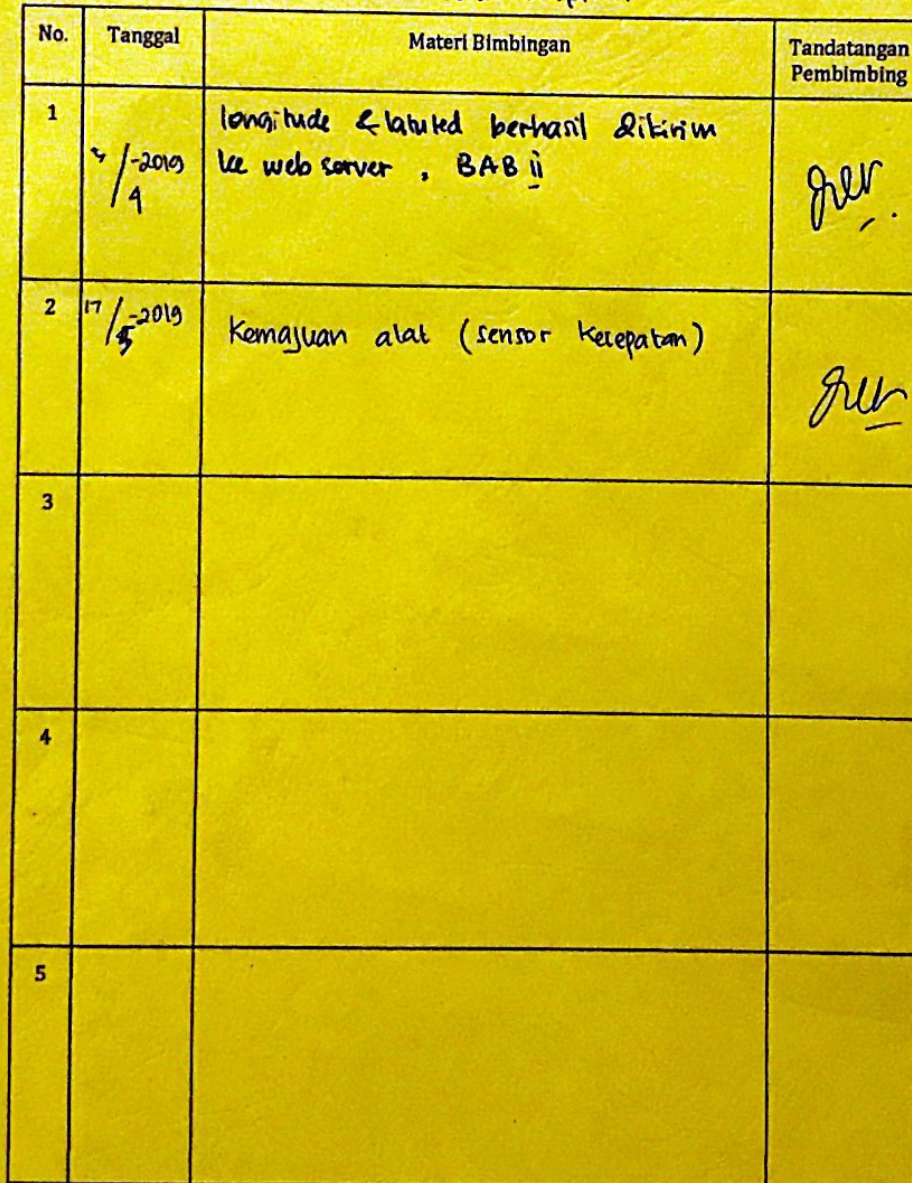 No. Tanggal Materi Bimbingan Tandatangan
Pembimbing
1
longitude & latuted berhasil dikirim
/-2019 ke web server, BAB ii
4
2 17/-2019
5
Kemajuan alat (sensor kecepatan)
3
4
5